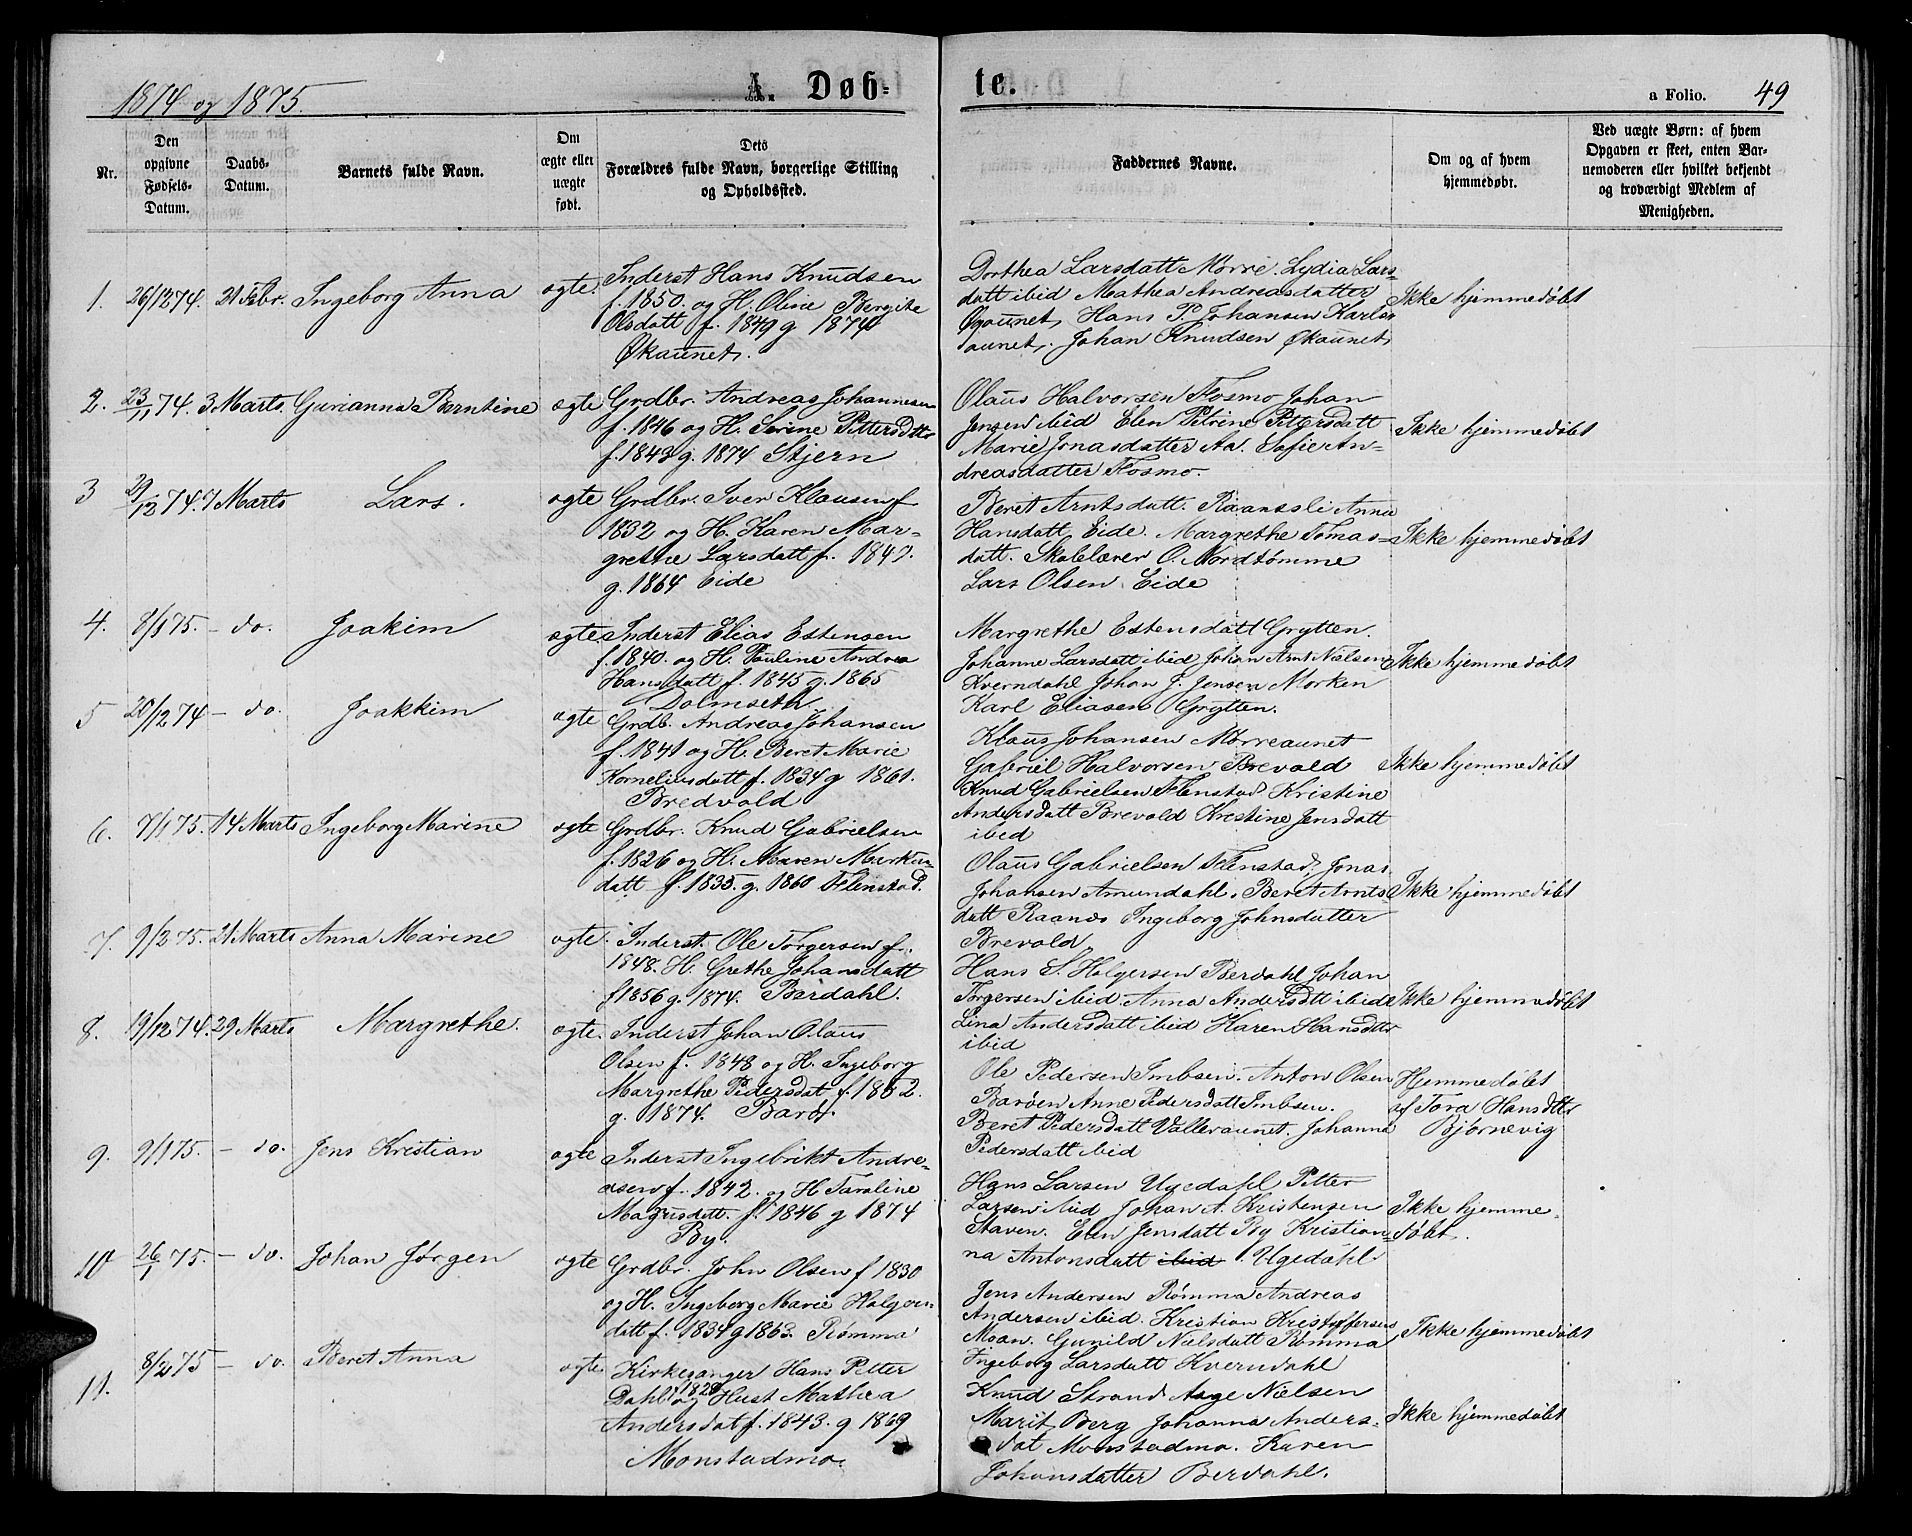 1874 og 1875.
A. Døb-
te.
a Folio. 49
Nr.
Den opgivne Fødsels-Datum.
Daabs-Datum.
Barnets fulde Navn.
Om ægte eller uægte født.
Dets Forældres fulde Navn, borgerlige Stilling og Opholdssted.
Faddernes Navne.
Om og af hvem hjemmedøbt.
Ved uægte Børn: af hvem Opgaven er skeet, enten Barnemoderen eller hvilket bekjendt og troværdigt Medlem af Menigheden.
1. 26/12 74. 21 Febr. Ingeborg Anna ægte.
Inderst Hans Knudsen
f. 1850. og H. Oline Bergite
Olsdatt f. 1849 g 1874
Økaunet.
Dorthea Larsdatt Mørre. Lydia Lars-
datt ibid Mathea Andreasdatter
Øgaunet, Hans P. Johansen Karls
aunet. Johan Knudsen Økaunet
Ikke hjemmedøbt
2. 23/11 74. 3 Marts. Gurianna Berntine ægte
Grdbr. Andreas Johannesen
f. 1846 og H. Serine Pittersdttr
f. 1843 g. 1874 Stjern
Olaus Halvorsen Fosmo Johan
Jensen ibid Elen Petrine Petersdatt
Marie Jonasdatter Aa. Sofie An-
dreasdatter Fosmo.
Ikke hjemmedøbt
3 29/12 74. 7 Marts Lars. ægte
Grdbr. Iver Klausen f
1832 og H. Karen Mar-
grethe Larsdatt f. 1847.
g. 1864 Eide
Beret Arntsdatt. Raanesli Anna
Hansdatt Eide. Margrethe Tomas-
datt. Skolelærer O. Nordtømme
Lars Olsen Eide
Ikke hjemmedøbt
4. 8/1 75. - do. Joakim ægte
Inderst Elias Estensen
f. 1840. og H. Pauline Andrea
Hansdatt f. 1845 g. 1865
Dolmseth.
Margrethe Estensdatt Grytten.
Johanne Larsdatt ibid Johan Arnt Nielsen
Kverndahl Johan J. Jensen Morken
Karl Eliasen Grytten.
Ikke hjemmedøbt
5 28/12 74 - do. Joakkim ægte
Grdb. Andreas Johansen
f. 1841 og H. Beret Marie
Korneliusdatt f. 1834 g 1861.
Bredvold
Klaus Johansen Mørreaunet
Gabriel Halvorsen Brevold
Knud Gabrielsen Flenstad Kristine
Andersdatt Brevold Kristine Jensdatt
ibid
Ikke hjemmedøbt
6. 7/1 75. 14 Marts Ingeborg Marine ægte
Grdbr. Knud Gabrielsen
f. 1826 og H. Maren Markus-
datt f. 1835. g. 1860 Flenstad.
Olaus Gabrielsen Flenstad. Jonas
Johansen Amundahl. Beret Arnts
datt Raanes Ingeborg Johnsdatter
Brevold
Ikke hjemmedøbt
7. 9/2 75. 21 Marts Anna Marine ægte.
Inderst. Ole Torgersen f.
1848. H. Grethe Johansdatt
f 1856 g. 1874. Bardahl.
Hans S. Holgersen Berdahl Johan
Torgersen ibid. Anna Andersdtt ibid
Lina Andersdatt ibid Karen Hansdttr
ibid
Ikke hjemmedøbt
8. 19/12 74. 29 Marts Margrethe. ægte.
Inderst Johan Olaus
Olsen f. 1848 og H. Ingeborg
Margrethe Pedersdat f. 1852.
g. 1874.
Ole Pedersen Imbsen. Anton Olsen
Barøen Anne Pedersdatt Imbsen.
Beret Pedersdatt Valleraunet. Johanna
Pedersdatt ibid
Hjemmedøbt
af Tora Hansdttr
Bjørnevig
9. 9/1 75. - do. Jens Kristian ægte
Inderst Ingebrikt Andre-
asen f. 1842. og H Taraline
Magnusdatt. f. 1846 g 1874
By.
Hans Larsen Ugedahl Petter
Larsen ibid Johan A. Kristensen
Staven. Elen Jensdatt By Kristian-
na Antonsdatt ibid Ugedahl.
Ikke hjemme-
døbt.
10 26/1 75. - do. Johan Jørgen ægte
Grdbr. John Olsen f 1830
og H. Ingeborg Marie Holgers-
datt f. 1834 g 1863. Rømma
Jens Andersen Rømma Andreas
Andersen ibid. Kristian Kristoffersen
Moan. Gunild Nielsdatt Rømma
Ingeborg Larsdatt Kverndahl
Ikke hjemmedøbt
11. 8/2 75 - do. Beret Anna ægte
Kirkesanger Hans Petter
Dahl f 1828 og Hust Mathea
Andersdat f. 1843. g 1869
Monstadmo.
Knud Strand Aage Nielsen
Marit Berg Johanna Anders-
dat Monstadmo. Karen
Johansdatter Berdahl.
Ikke hjemmedøbt